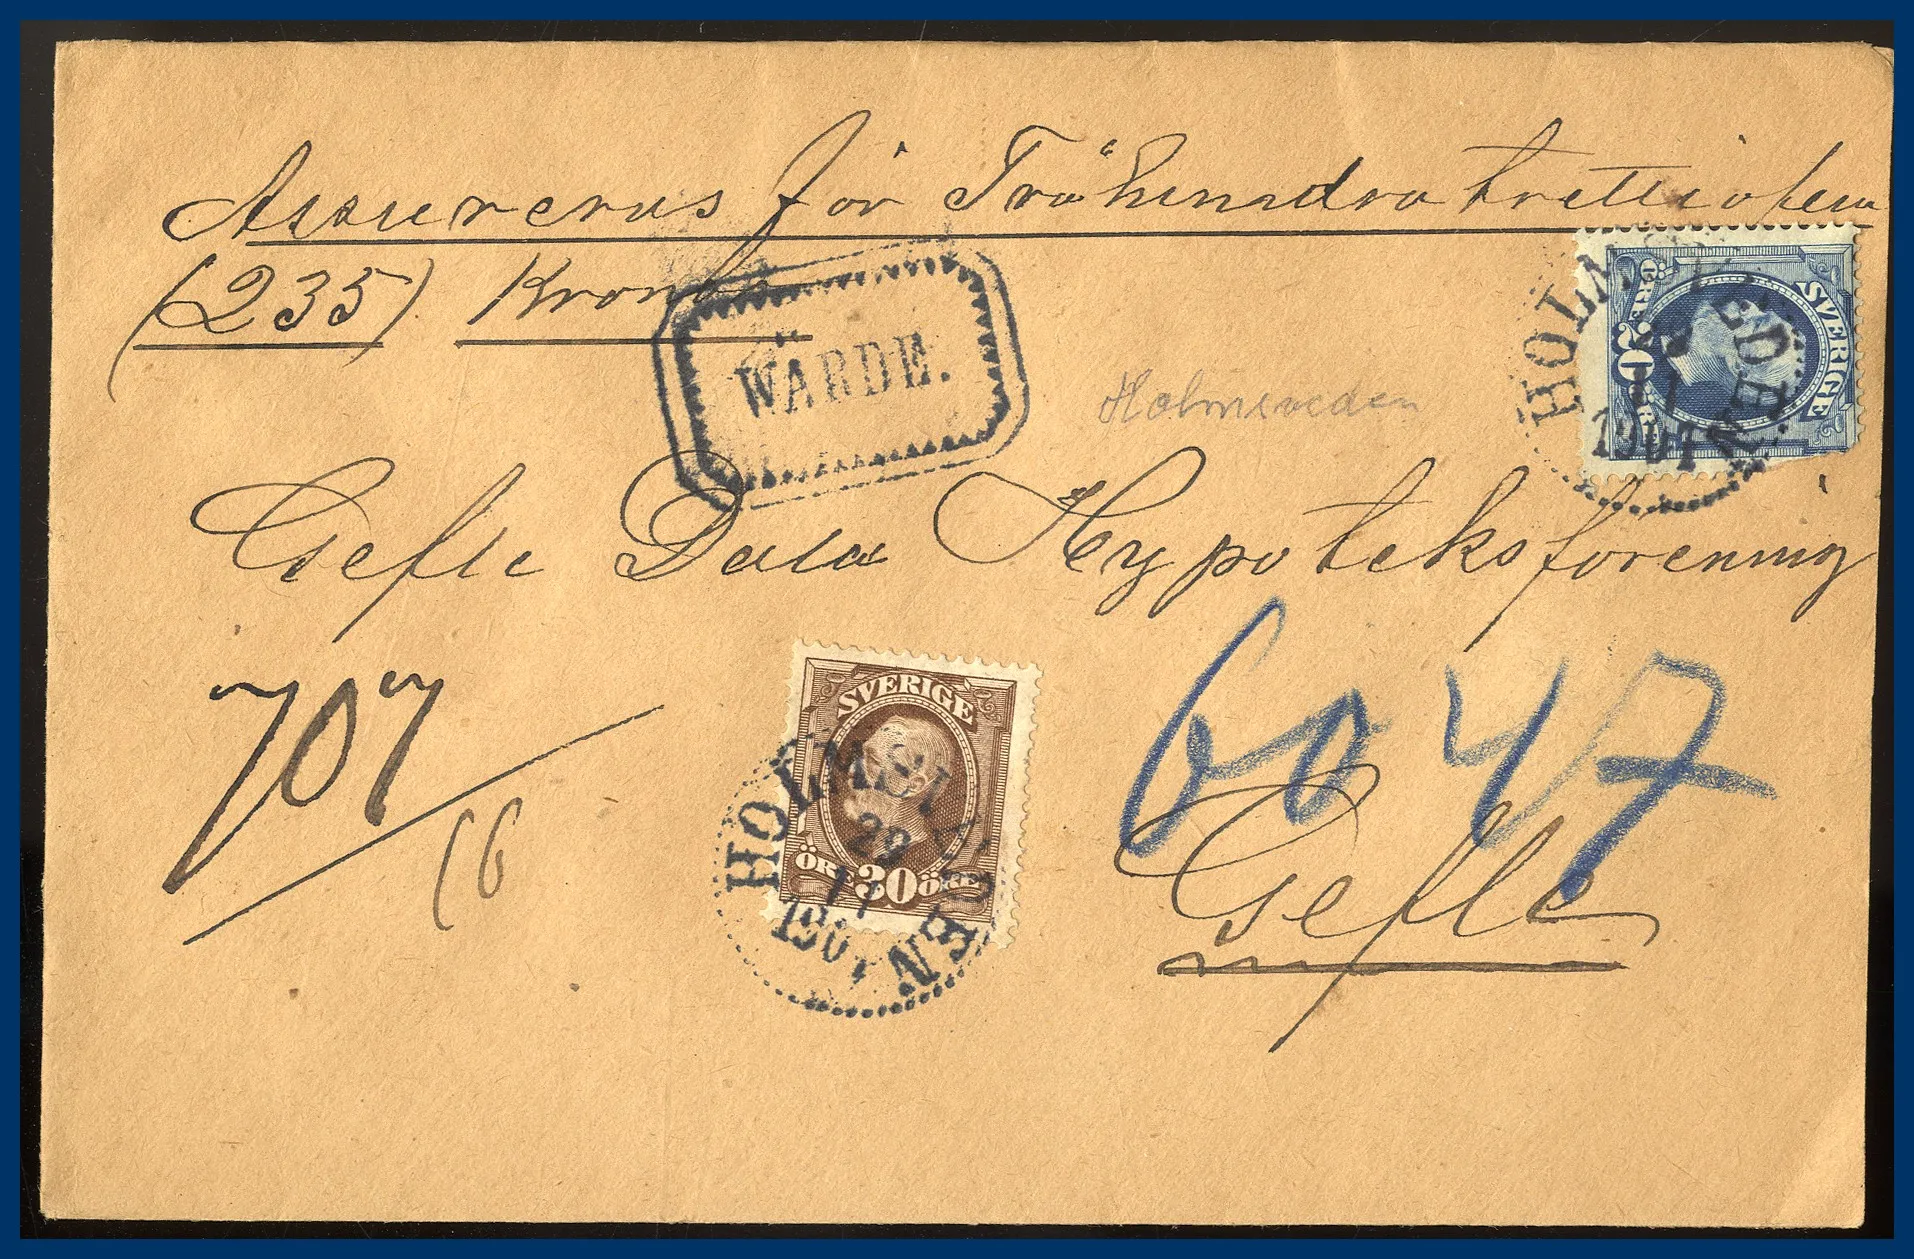 Assureras för Tvåhundratrettiofem
(235) Kronor
WÄRDE.
Holmsveden
SVERIGE
20
ÖRE
HOLMSVEDEN
1901
Gefle Dala Hypoteksförening
707
16
SVERIGE
ÖRE 30 ÖRE
HOLMSVEDEN
29
11
1901
6047
Gefle